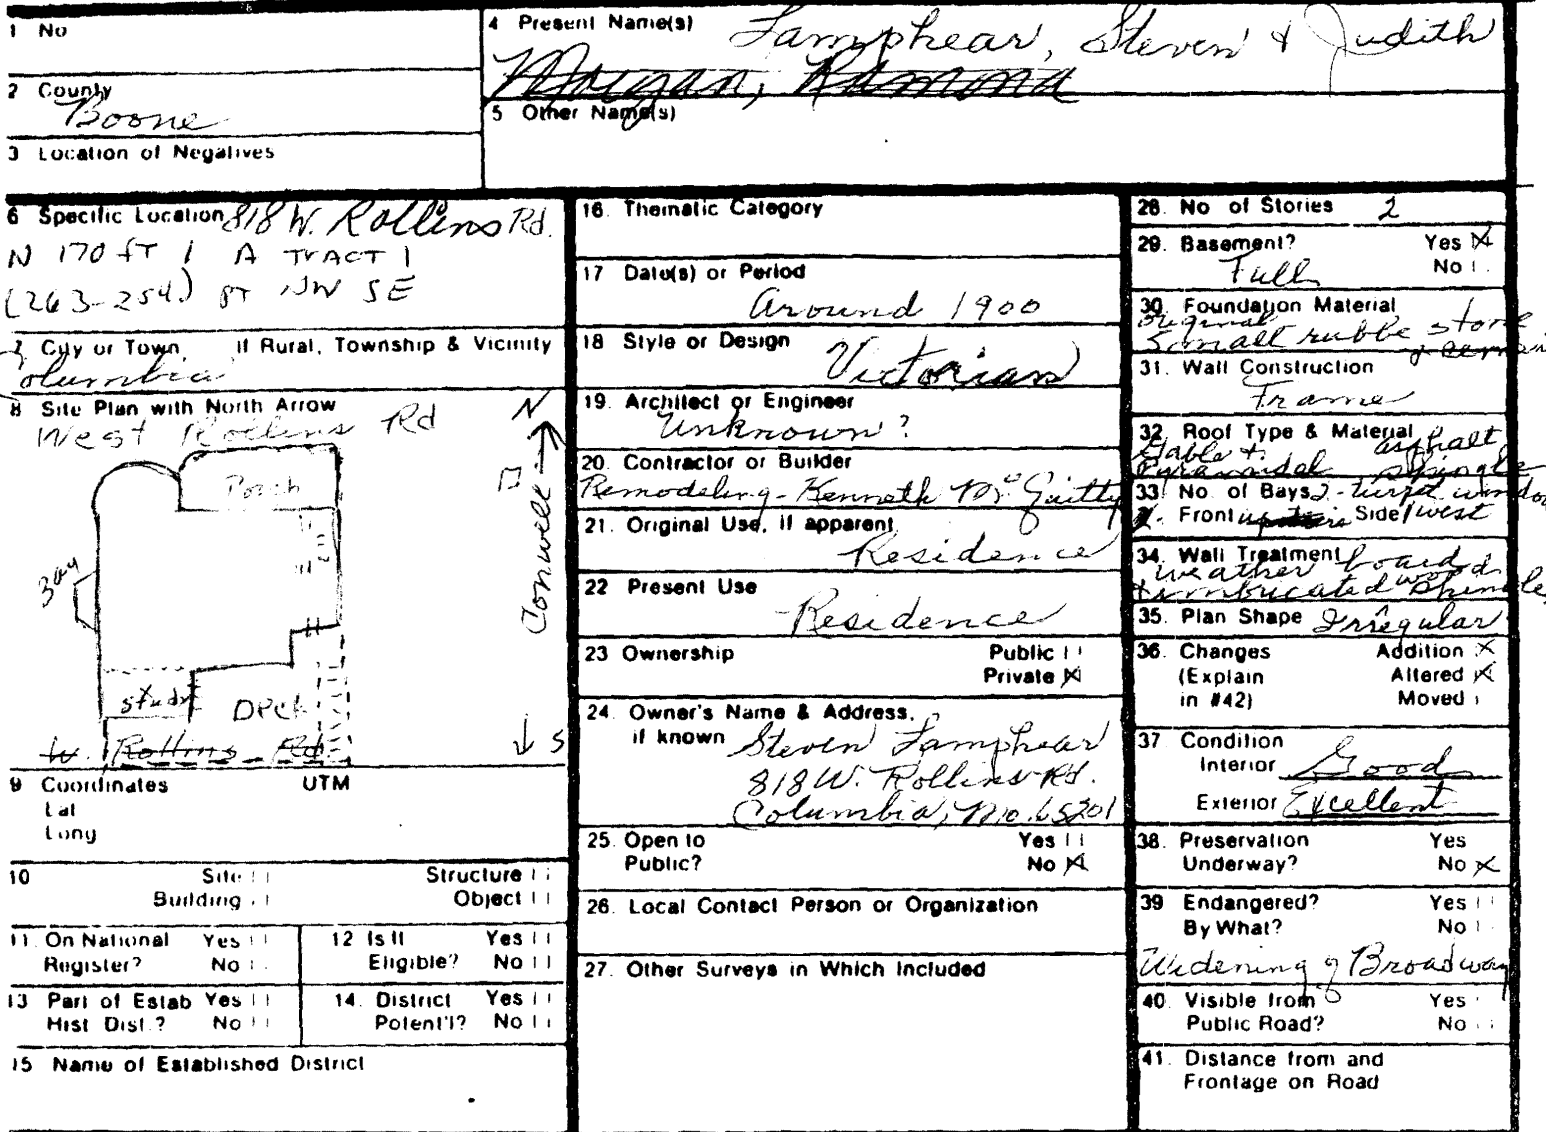 1 No
2 County
Boone
3 Location of Negatives
4 Present Name(s) Lamphear, Steven & Judith
Morgan, Ramona
5 Other Name(s)
6 Specific Location 818 W. Rollins Rd.
N 170 ft 1 A TRACT 1
(263-254) PT NW SE
7 City or Town, If Rural, Township & Vicinity
Columbia
8 Site Plan with North Arrow N
West Rollins Rd
Porch
Bay
Conwell
study
Deck
W. Rollins Rd S
9 Coordinates UTM
Lat
Long
10 Site Structure
Building Object
11. On National Register? Yes No
12 Is It Eligible? Yes No
13 Part of Estab Hist Dist.? Yes No
14. District Potent'l? Yes No
15 Name of Established District
16. Thematic Category
17 Date(s) or Period
Around 1900
18 Style or Design
Victorian
19. Architect or Engineer
Unknown?
20. Contractor or Builder
Remodeling - Kenneth
21. Original Use, if apparent
Residence
22 Present Use
Residence
23 Ownership Public
Private X
24. Owner's Name & Address,
if known Steven Lamphear
818 W. Rollins Rd.
Columbia, Mo. 65201
25. Open to Yes
Public? No X
26. Local Contact Person or Organization
27. Other Surveys in Which Included
28. No of Stories 2
29. Basement? Yes X
Full No
30. Foundation Material
original
Small rubble stone
31. Wall Construction
Frame
32. Roof Type & Material
Gable + asphalt
Pyramidal shingle
33. No. of Bays 2-turret window
Front upstairs Side 1 west
34. Wall Treatment
weather board
+ imbricated wood shingle
35. Plan Shape Irregular
36. Changes Addition X
(Explain Altered X
in #42) Moved
37 Condition
Interior Good
Exterior Excellent
38. Preservation Yes
Underway? No X
39 Endangered? Yes
By What? No
Widening of Broadway
40. Visible from Yes
Public Road? No
41. Distance from and
Frontage on Road